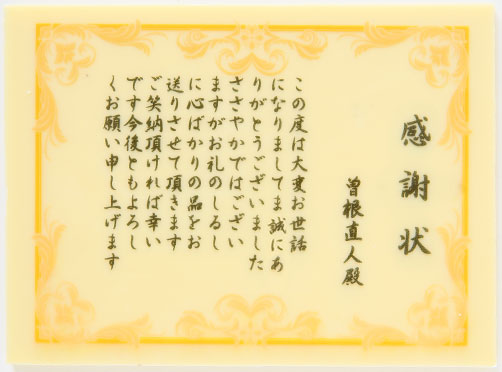 感謝状
曽根直人殿
この度は大変お世話
になりましてま誠にあ
りがとうございました
ささやかではござい
ますがお礼のしるし
に心ばかりの品をお
送りさせて頂きます
ご笑納頂ければ幸い
です今後ともよろし
くお願い申し上げます